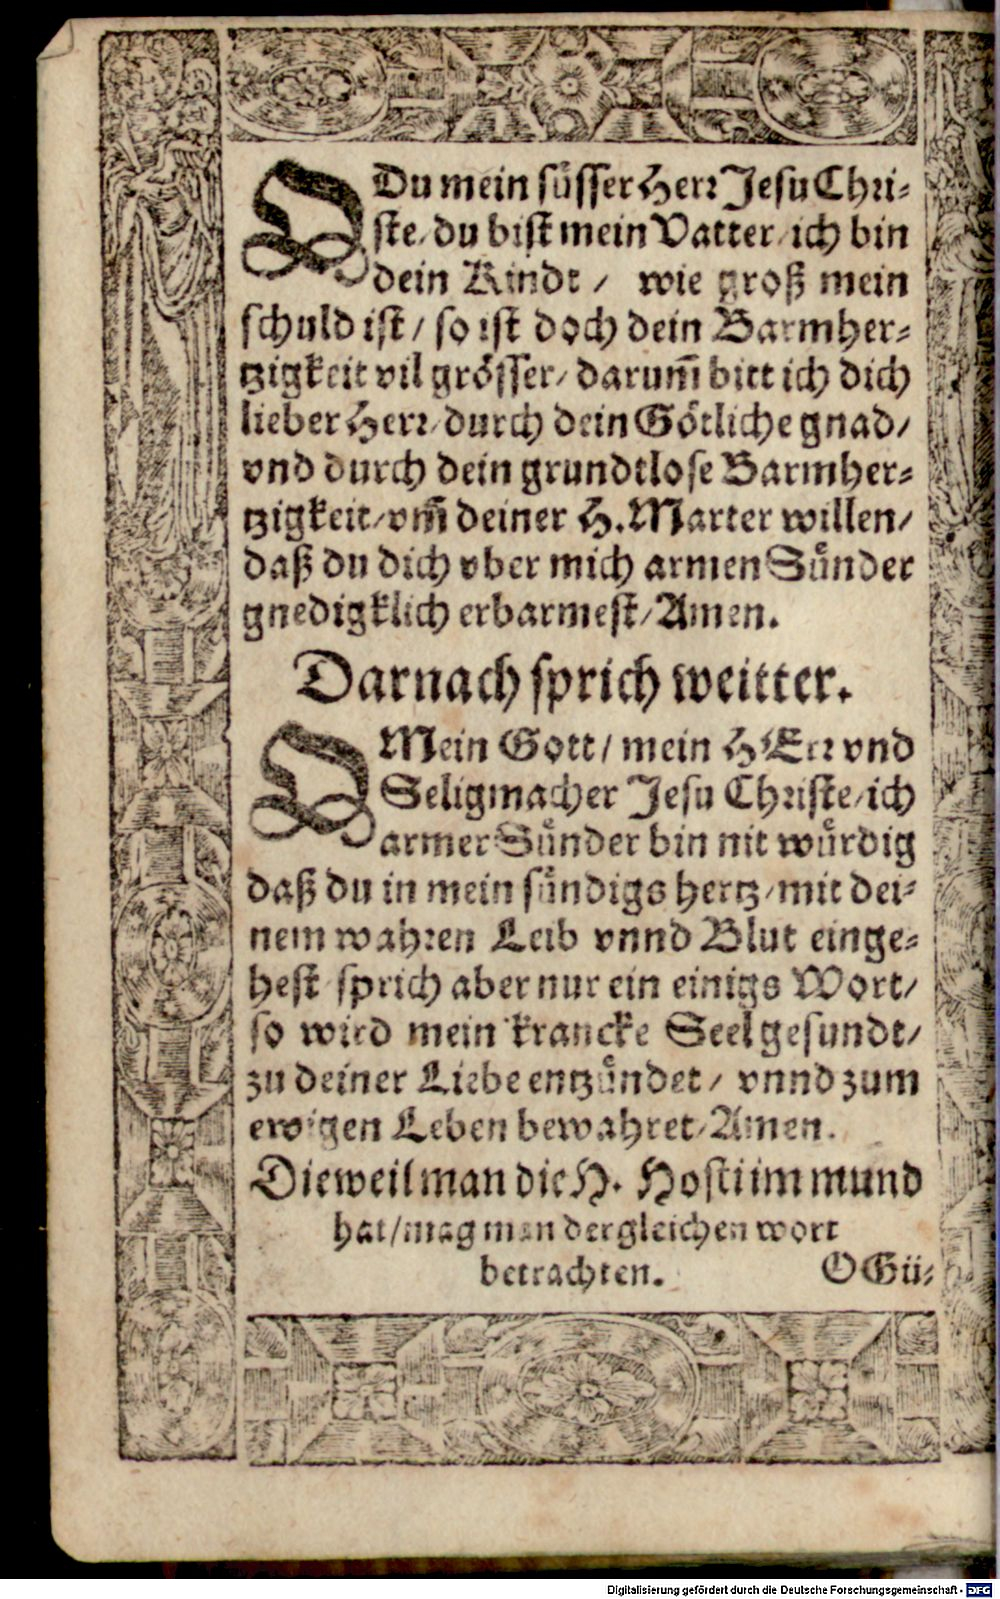 O Du mein süsser Herr Jesu Chri-
ste/ du bist mein Vatter/ ich bin
dein Kindt / wie groß mein
schuld ist/ so ist doch dein Barmher-
tzigkeit vil grösser/ darum̃ bitt ich dich
lieber Herr/ durch dein Götliche gnad/
vnd durch dein grundtlose Barmher-
tzigkeit/ vm̃ deiner H. Marter willen/
daß du dich vber mich armen Sünder
gnedigklich erbarmest/ Amen.
Darnach sprich weitter.
O Mein Gott/ mein HErr vnd
Seligmacher Jesu Christe/ ich
armer Sünder bin nit würdig
daß du in mein sündigs hertz/ mit dei-
nem wahren Leib vnnd Blut einge-
hest sprich aber nur ein einigs Wort/
so wird mein krancke Seel gesundt/
zu deiner Liebe entzündet/ vnnd zum
ewigen Leben bewahret/ Amen.
Dieweil man die H. Hosti im mund
hat/ mag man dergleichen wort
betrachten. O Gü-
Digitalisierung gefördert durch die Deutsche Forschungsgemeinschaft - DFG